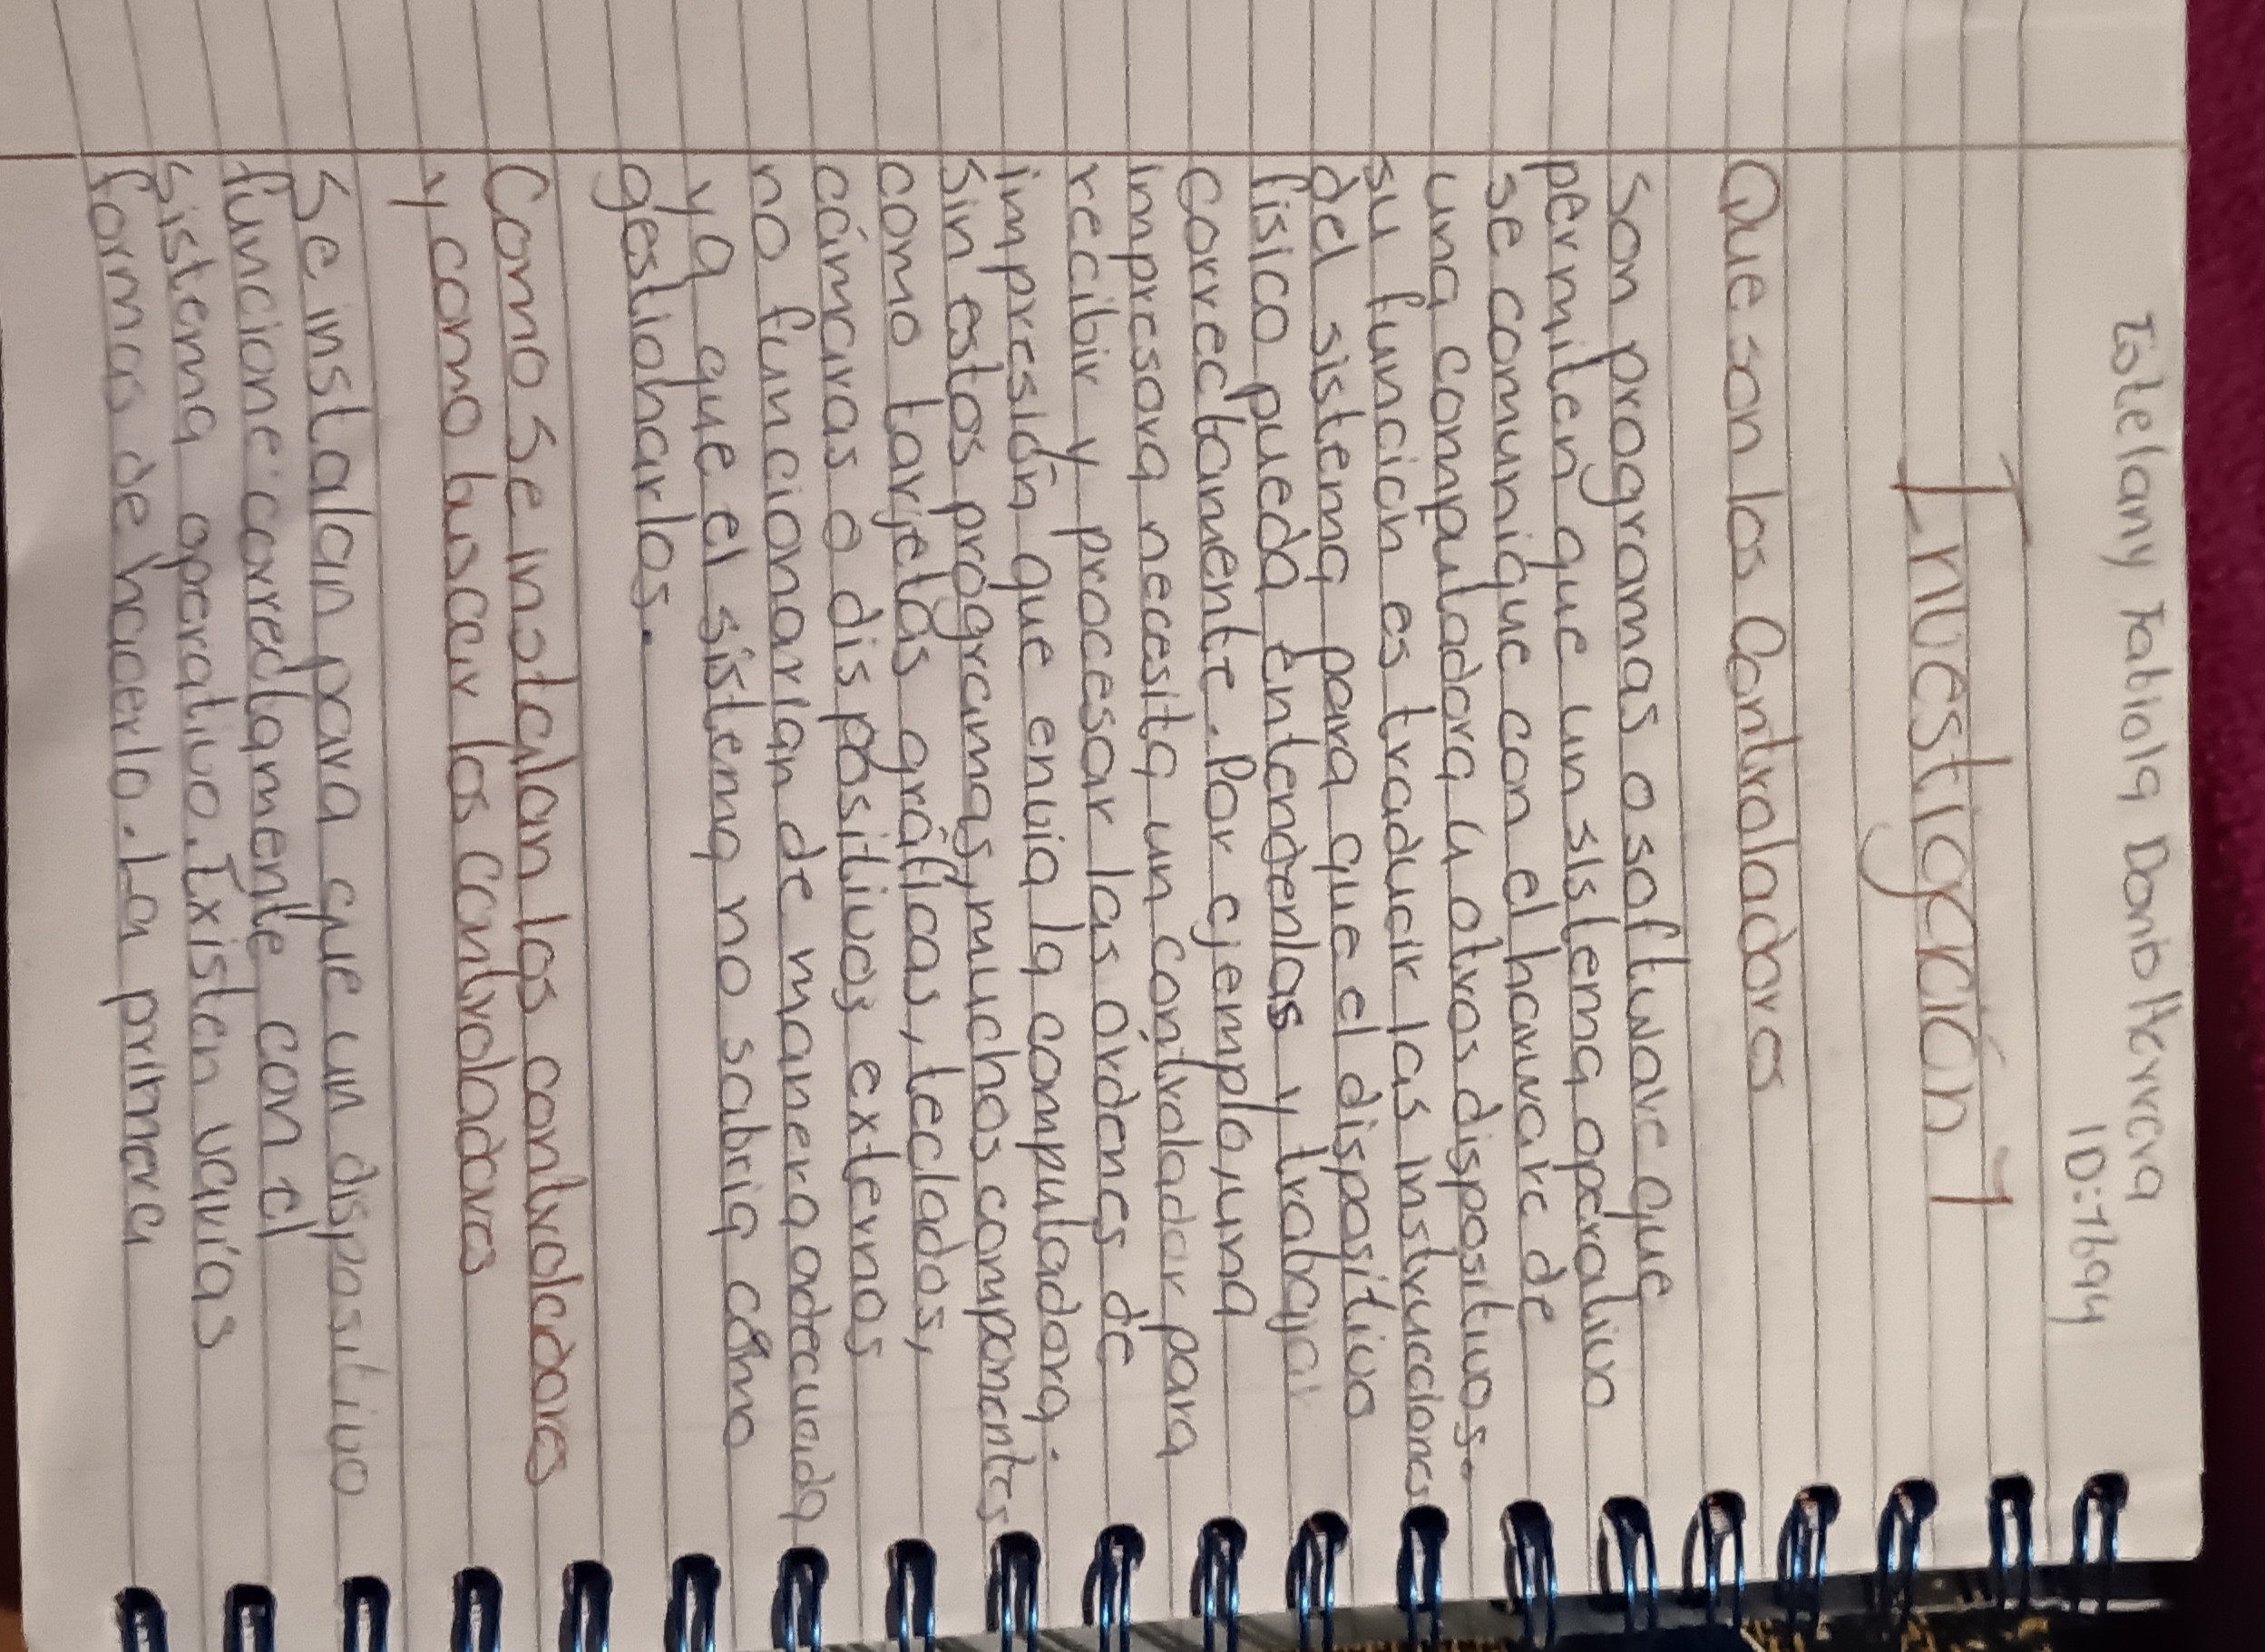 Fabiola
ID: 7694
Investigación 1
Que son los Controladores
Son programas o software que
permiten que un sistema operativo
se comunique con el harware de
una computadora u otros dispositivos.
su funcion es traducir las instrucciones
del sistema para que el dispositivo
fisico pueda entenderlas y trabajar
correctamente. Por ejemplo, una
impresora necesita un controlador para
recibir y procesar las ordenes de
impresión que envia la computadora.
Sin estos programas, muchos componentes
como tarjetas gráficas, teclados,
cámaras o dispositivos externos
no funcionarían de manera adecuada
ya que el sistema no sabria cómo
gestioharlos.
Como se instalan los controladores
y como buscar los controladores
Se instalan para que un dispositivo
funcione correctamente con el
sistema operativo. Existen varías
formas de hacerlo. La primera